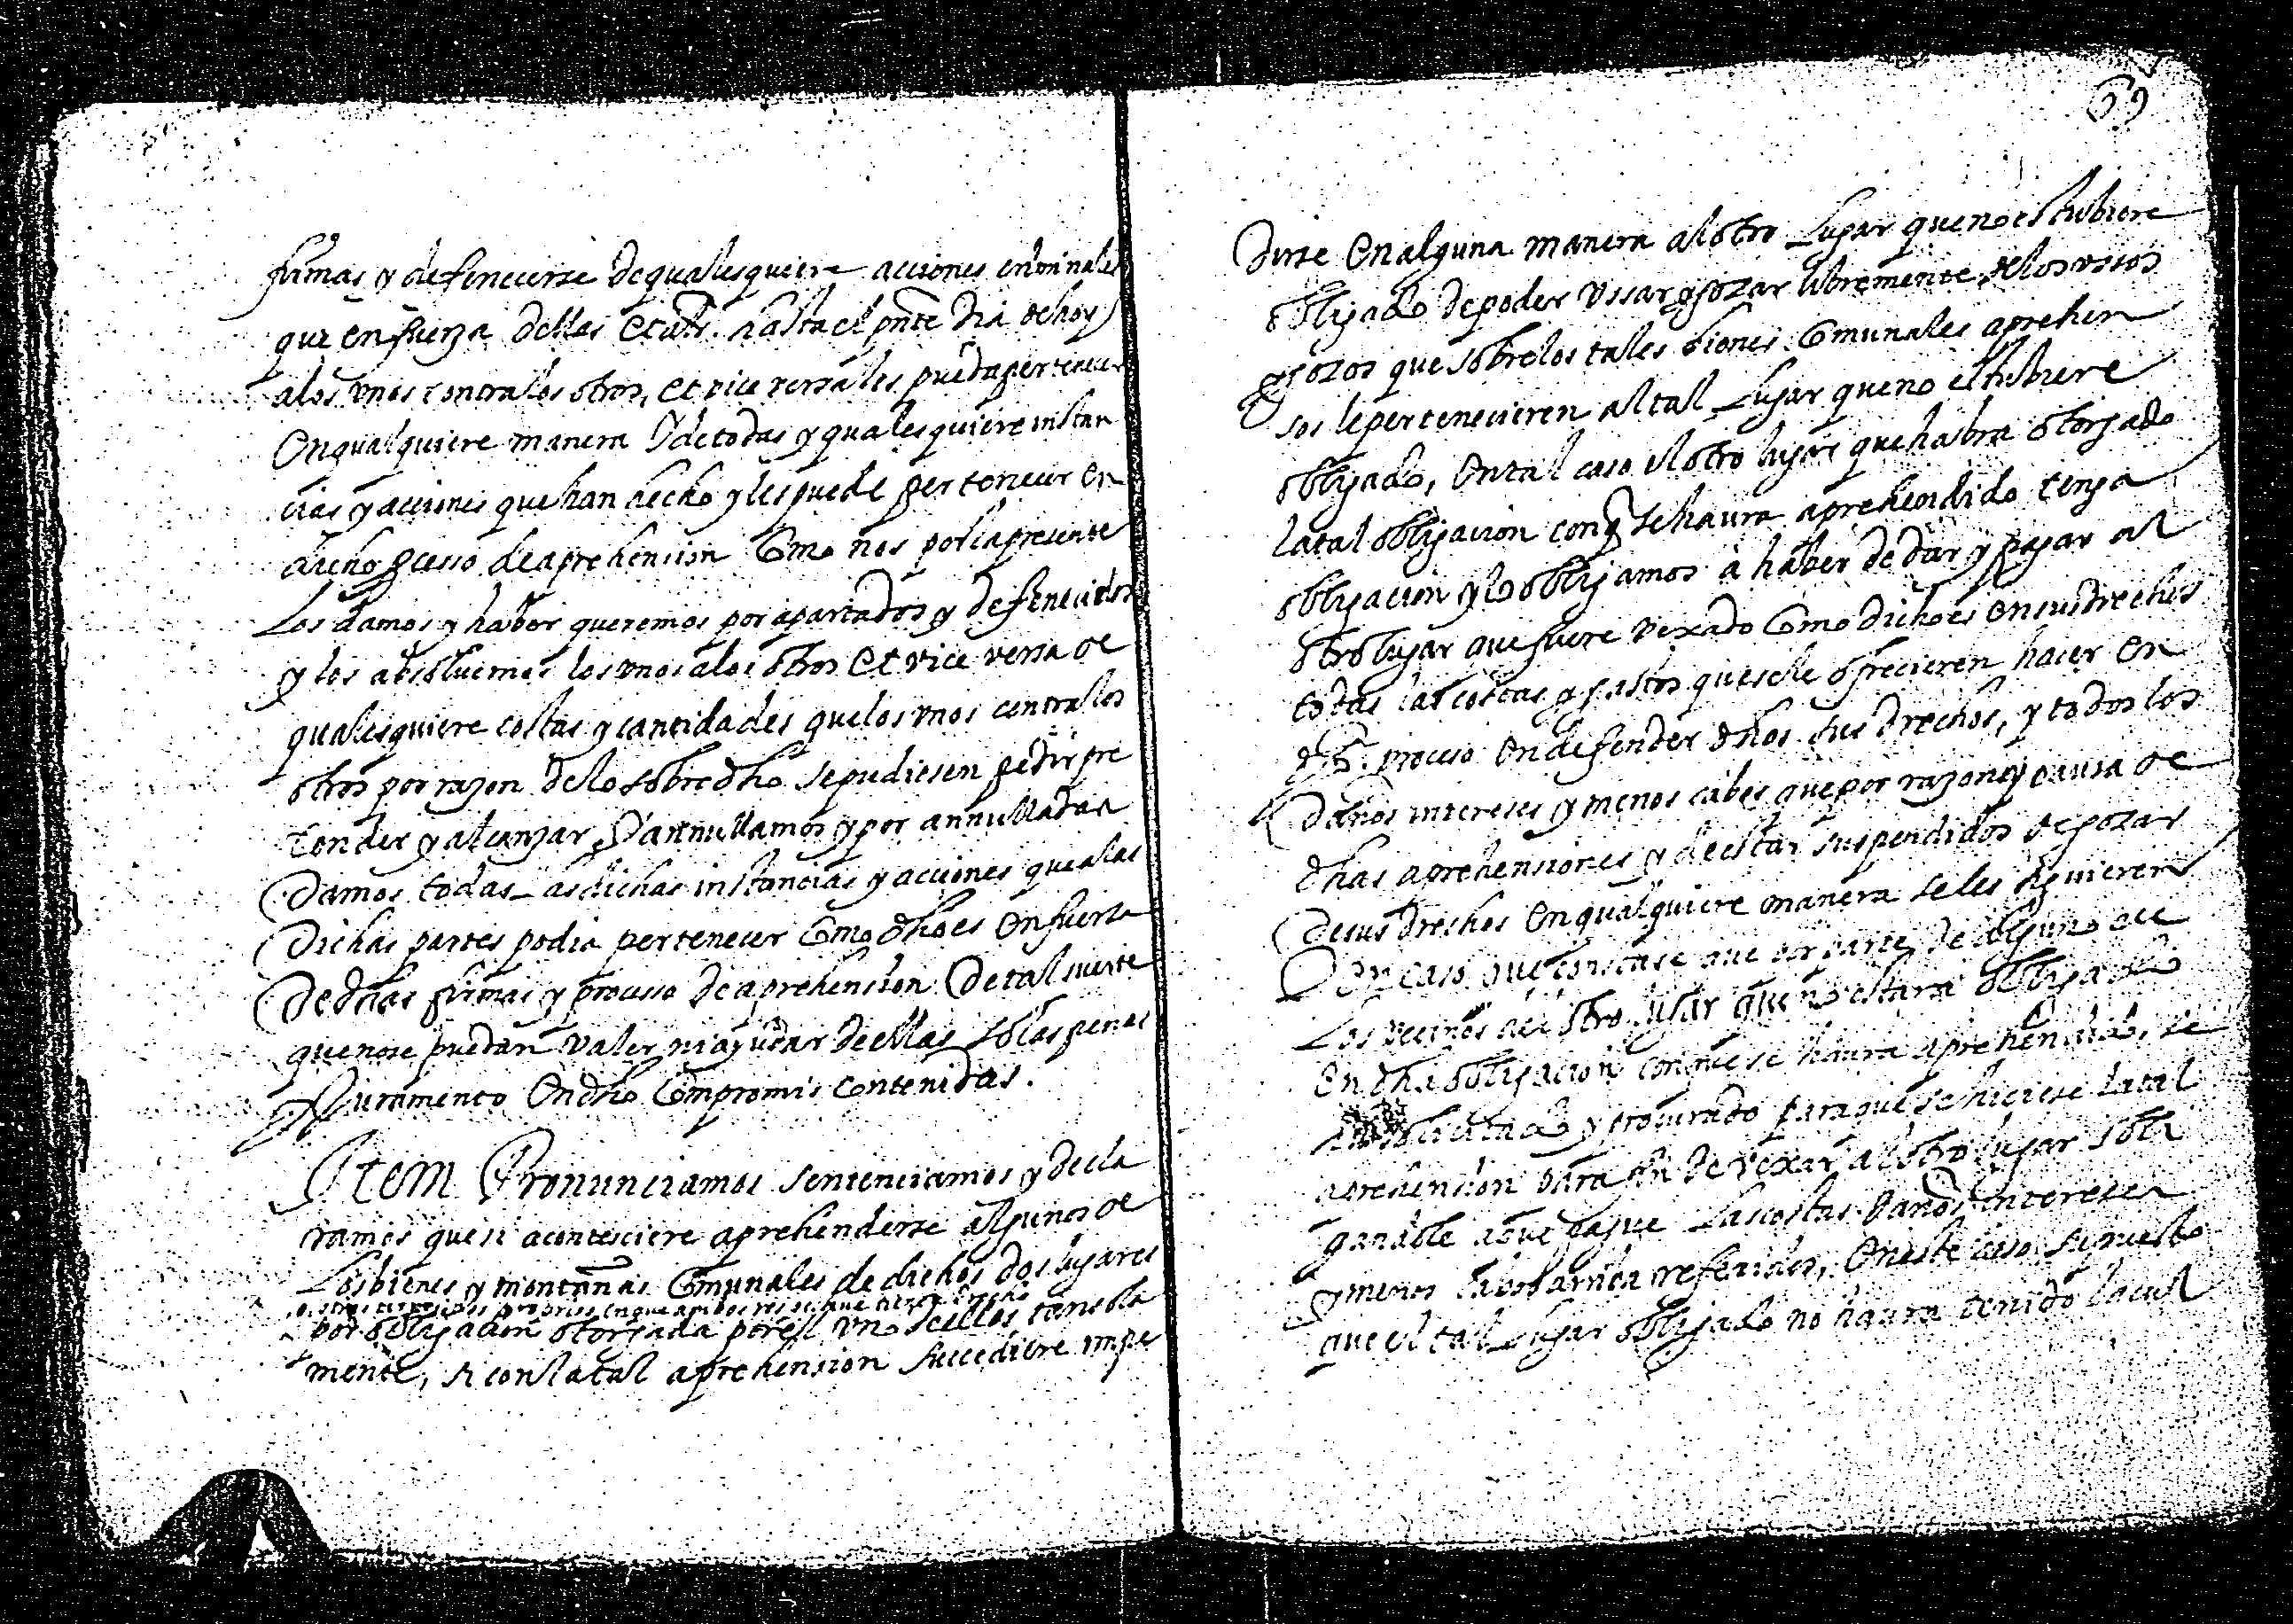 firmas y defenecerse de qualesquiere acciones criminales
que en fuerza dellas et als. hasta el pnte dia de hoy
a los unos contra los otros, et vice versa les pueda pertenecer
en qualquiere manera Y de todas y qualesquiere instan
cias y acciones que han hecho y les puede pertenecer en
dicho processo de aprehension Como nos por la presente
Los damos y haber queremos por apartados y defenecidos
y los absoluemos los unos a los otros et vice versa de
qualesquiere costas y cantidades que los unos contra los
otros por razon de lo sobredho se pudiesen pedir pre
tender y alcanzar, Y annullamos y por annulladas
Damos todas las dichas instancias y acciones que a las
Dichas partes podia pertenecer Como dho es en fuerza
De dhas firmas y processo de aprehension De tal suerte
que no se puedan valer ni ayudar de ellas so las penas
y Juramento en dho Compromis contenidas.
Item Pronunciamos sentenciamos y decla
ramos que si aconteciere aprehenderse algunos de
Los bienes y montañas Comunales de dichos dos lugares
por obligacion otorgada por el uno dellos tansola
mente, si con la tal aprehension succediere impe
59
dirse en alguna manera al otro Lugar que no estubiere
obligado de poder ussar y gozar libremente de los ussos
y gozos que sobre los tales bienes Comunales aprehen
sos le pertenecieren al tal Lugar que no estubiere
obligado, en tal caso el otro lugar que habra otorgado
la tal obligacion con q se haura aprehendido tenga
obligacion y lo obligamos à haber de dar y pagar al
otro lugar que fuere vexado Como dicho es en sus drechos
todas las costas y gastos que se le ofrecieren hacer en
dho. processo en defender dhos sus drechos, y todos los
Daños intereses y menos cabos que por razon y causa de
dhas aprehensiones y de estar suspendidos de gozar
de sus drechos en qualquiere manera se les siguieren
Y en caso que constase que por parte de alguno de
Los vecinos del otro lugar que no estara obligado
en dha obligacion con que se haura aprehendido, se
solicitado y procurado para que se hiciese la tal
aprehension para fin de vexar al otro lugar obli
gandole a que pague Las costas Danos Intereses
y menos cabos arriba referidos, en este caso supuesto
que el tal Lugar obligado no haura tenido la cul